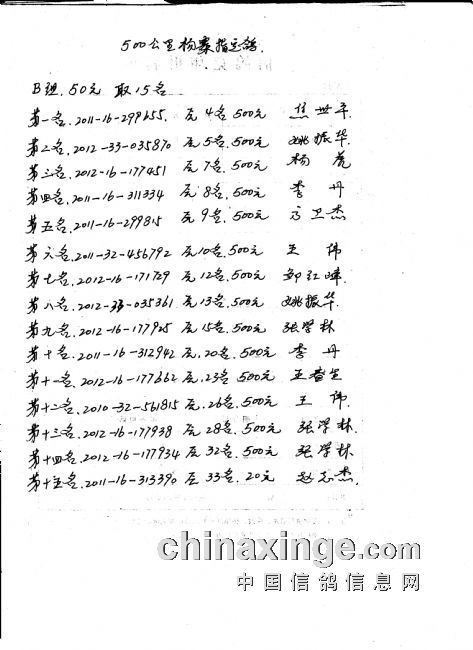 500公里杨寨指定鸽.
B组.50元 取15名
第一名.2011-16-299655.及4名.500元 焦世平.
第二名.2012-33-035870 及5名.500元 姚振华.
第三名.2012-16-177451 及7名.500元 杨亮
第四名.2011-16-311334 及8名.500元 李丹
第五名.2011-16-299815 及9名.500元 卫杰
第六名.2011-32-456792 及10名.500元 王伟
第七名.2012-16-171729 及12名.500元 邹红峰.
第八名.2012-33-035361 及13名.500元 姚振华.
第九名.2012-16-177925 及15名.500元 张学林
第十名.2011-16-312942 及.20名.500元 李丹
第十一名.2012-16-177662 及.23名.500元 王春生
第十二名.2010-32-561815 及.26名.500元 王伟.
第十三名.2012-16-177938 及28名.500元 张学林.
第十四名.2012-16-177934 及32名.500元 张学林
第十五名.2011-16-313390 及33名.20元 赵志杰.
chinaxinge.com
中国信鸽信息网